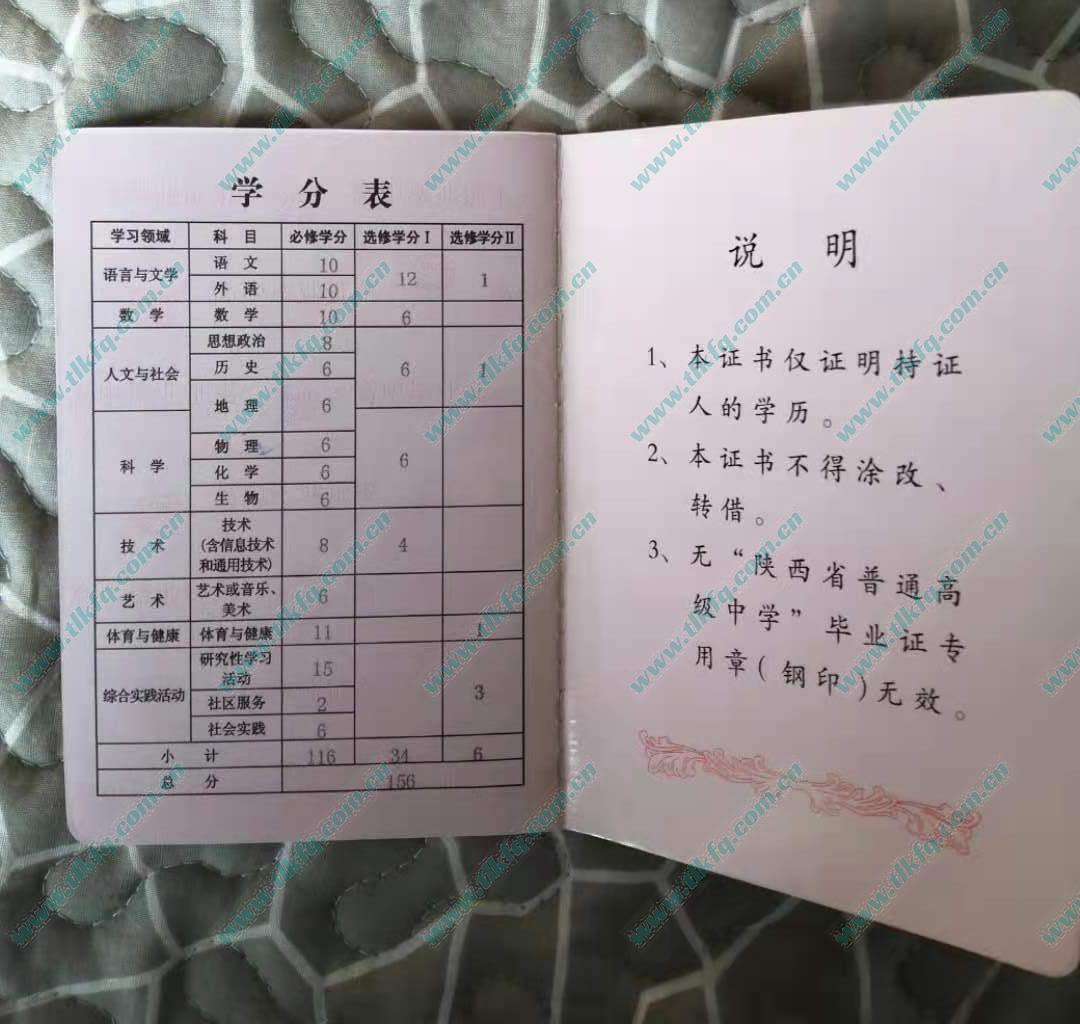 学 分 表
学习领域 科 目 必修学分 选修学分Ⅰ 选修学分Ⅱ
语言与文学 语 文 10 12 1
外 语 10
数 学 数 学 10 6
人文与社会 思想政治 8 6 1
历 史 6
地 理 6
科 学 物 理 6 6
化 学 6
生 物 6
技 术 技术 8 4
(含信息技术
和通用技术)
艺 术 艺术或音乐、 6
美术
体育与健康 体育与健康 11 1
综合实践活动 研究性学习 15 3
活动
社区服务 2
社会实践 6
小 计 116 34 6
总 分 156
说 明
1、本证书仅证明持证
人的学历。
2、本证书不得涂改、
转借。
3、无“陕西省普通高
级中学”毕业证专
用章(钢印)无效。
www.tlkfq.com.cn